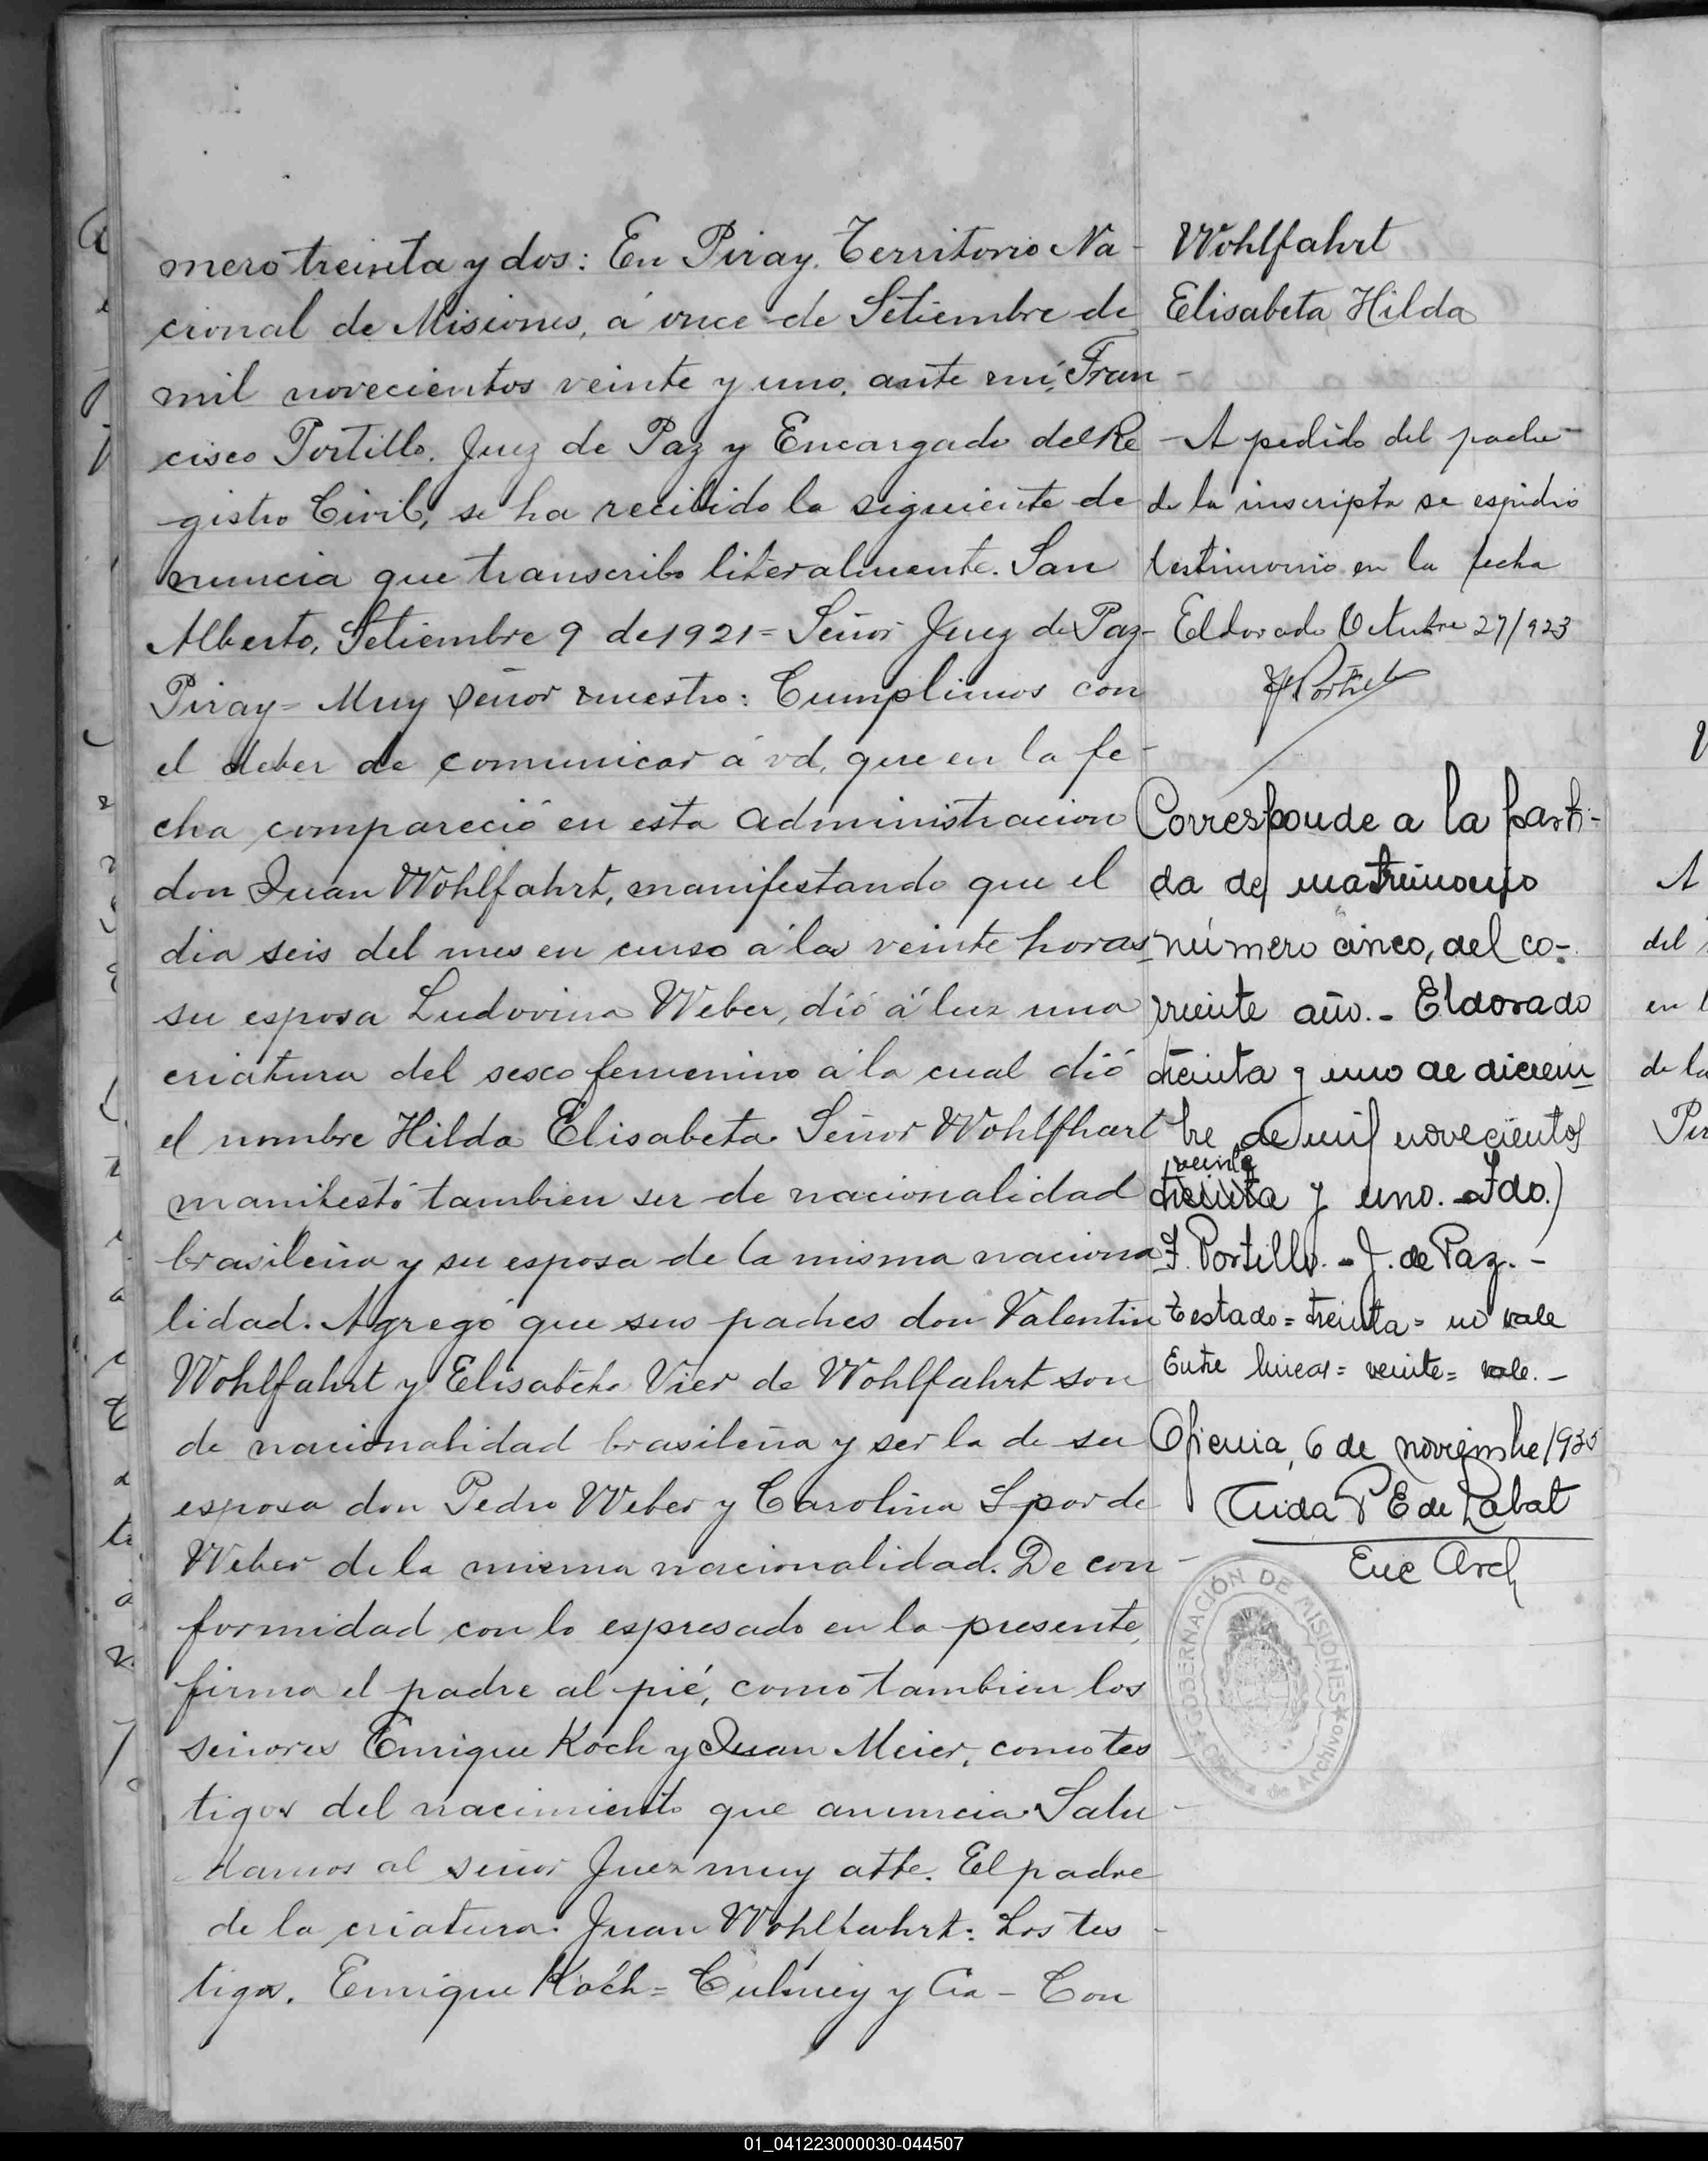 mero treinta y dos: En Piray. Territorio Na-
cional de Misiones, á once de Setiembre de
mil novecientos veinte y uno, ante mí, Fran-
cisco Portillo. Juez de Paz y Encargado del Re
gistro Civil, se ha recibido la siguiente de
nuncia que transcribo literalmente. San
Alberto, Setiembre 9 de 1921 = Señor Juez de Paz-
Piray = Muy señor nuestro: Cumplimos con
el deber de comunicar á vd, que en la fe-
cha compareció en esta Administracion
don Juan Wohlfahrt, manifestando que el
dia seis del mes en curso á las veinte horas
su esposa Ludovina Weber, dió á luz una
criatura del sesco femenino á la cual dió
el nombre Hilda Elisabeta. Señor Wohlfhart
manifestó tambien ser de nacionalidad
brasileña y su esposa de la misma naciona
lidad. Agregó que sus padres don Valentin
Wohlfahrt y Elisabeta Vier de Wohlfahrt son
de nacionalidad brasileña y ser la de su
esposa don Pedro Weber y Carolina Spor de
Weber de la misma nacionalidad. De con-
formidad con lo espresado en la presente,
firma el padre al pié, como tambien los
señores Enrique Koch y Juan Meier, como tes
tigos del nacimiento que anuncia. Salu-
damos al señor Juez muy atte. El padre
de la criatura. Juan Wohlfahrt: Los tes-
tigos. Enrique Koch = y Cia - Con
Wohlfahrt
Elisabeta Hilda
- A pedido del padre
de la inscripta se espidio
testimonio en la fecha
Eldorado Octubre 27/923
F Portillo
Corresponde a la parti-
da de matrimonio
número cinco, del co-
rriente año.- Eldorado
treinta y uno de diciem
bre de mil novecientos
veinte
treinta y uno.- Fdo.)
F. Portillo.- J. de Paz.-
Testado = treinta = no vale
Entre lineas = veinte = vale.-
Oficina, 6 de noviembre 1935
P E de Labat
Enc Arch
GOBERNACIÓN DE MISIONES
Oficina de Archivo
A
del
en l
de la
01_041223000030-044507